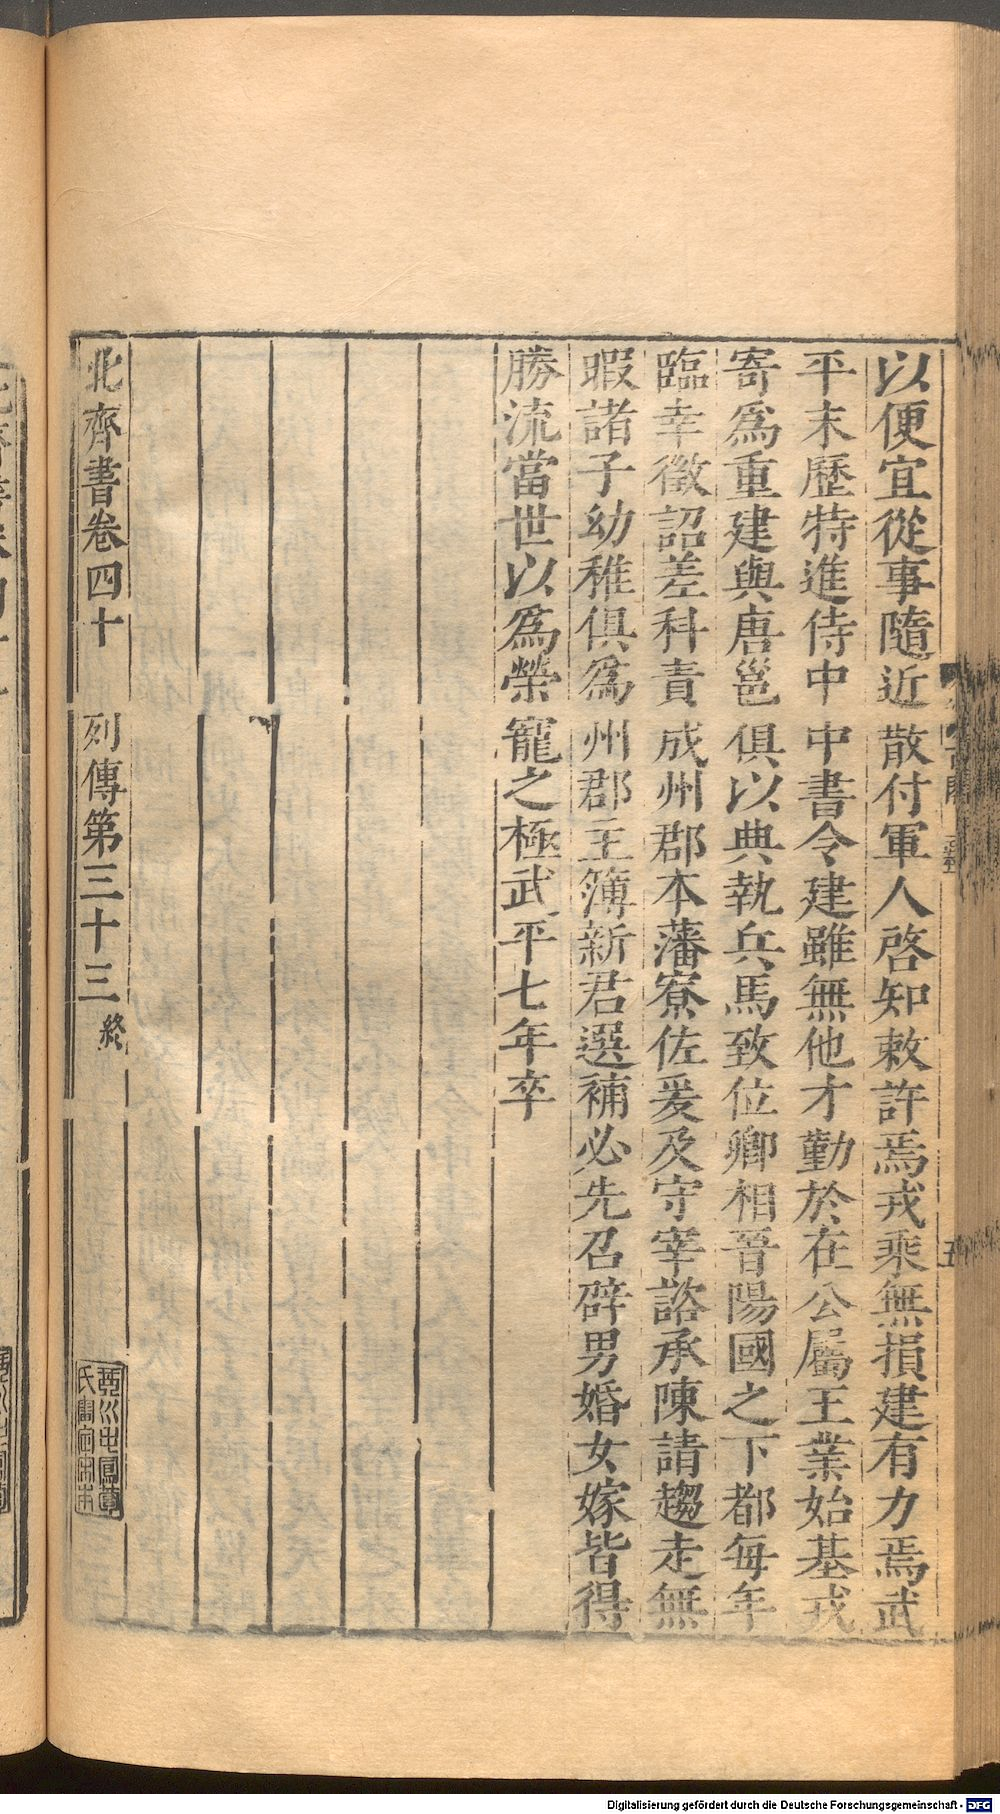 以便宜從事隨近散付軍人啓知敕許焉戎乘無損建有力焉武
平末歷特進侍中中書令建雖無他才勤於在公屬王業始基戎
寄爲重建與唐邕俱以典執兵馬致位卿相晉陽國之下都每年
臨幸徵詔差科責成州郡本藩寮佐爰及守宰諮承陳請趨走無
暇諸子幼稚俱爲州郡主簿新君選補必先召辟男婚女嫁皆得
勝流當世以爲榮寵之極武平七年卒
北齊書卷四十 列傳第三十三 終
Digitalisierung gefördert durch die Deutsche Forschungsgemeinschaft - DFG